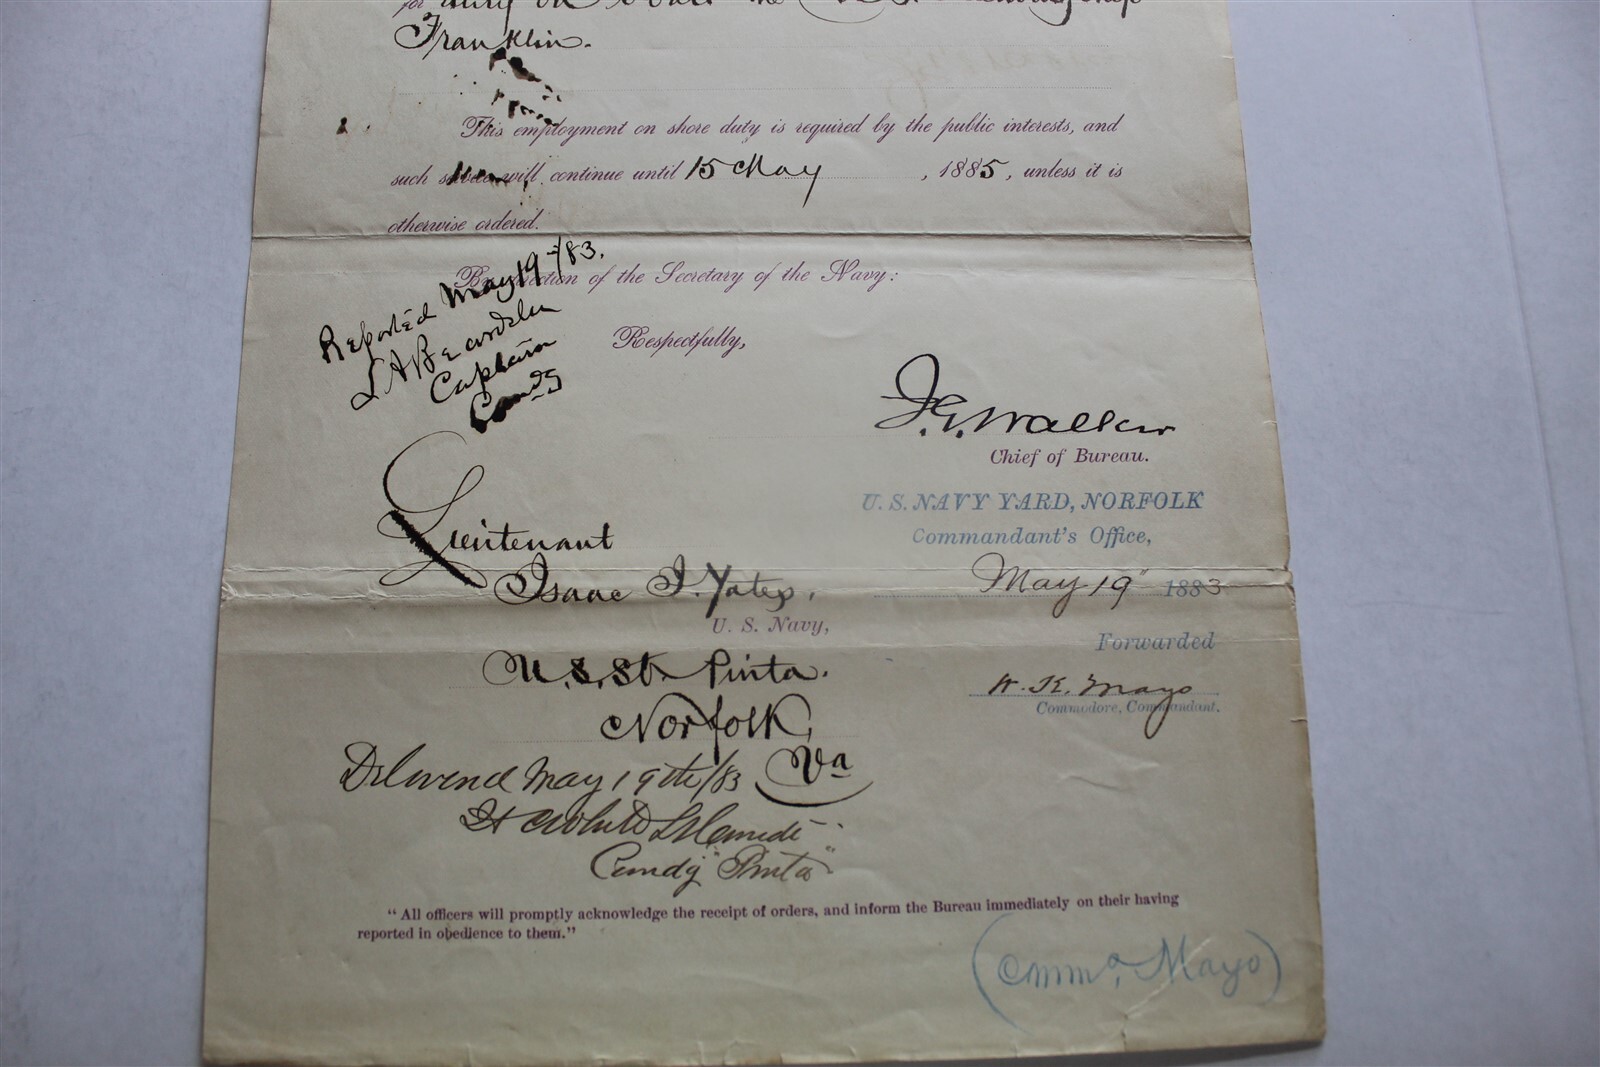 for duty on board the U.S. Receiving ship
Franklin.
This employment on shore duty is required by the public interests, and
such service will continue until 15 May, 1885, unless it is
otherwise ordered.
By direction of the Secretary of the Navy:
Reported May 19-/83.
L A Beardslee
Captain
Comdg
Respectfully,
J.G. Walker
Chief of Bureau.
U. S. NAVY YARD, NORFOLK
Commandant's Office,
May 19" 1883
Forwarded
W. K. Mayo
Commodore, Commandant.
Lieutenant
Isaac I. Yates,
U. S. Navy,
U.S.St. Pinta.
Norfolk,
Va
Delivered May 19th/83
Comdg "Pinta"
"All officers will promptly acknowledge the receipt of orders, and inform the Bureau immediately on their having
reported in obedience to them."
(Commo, Mayo)